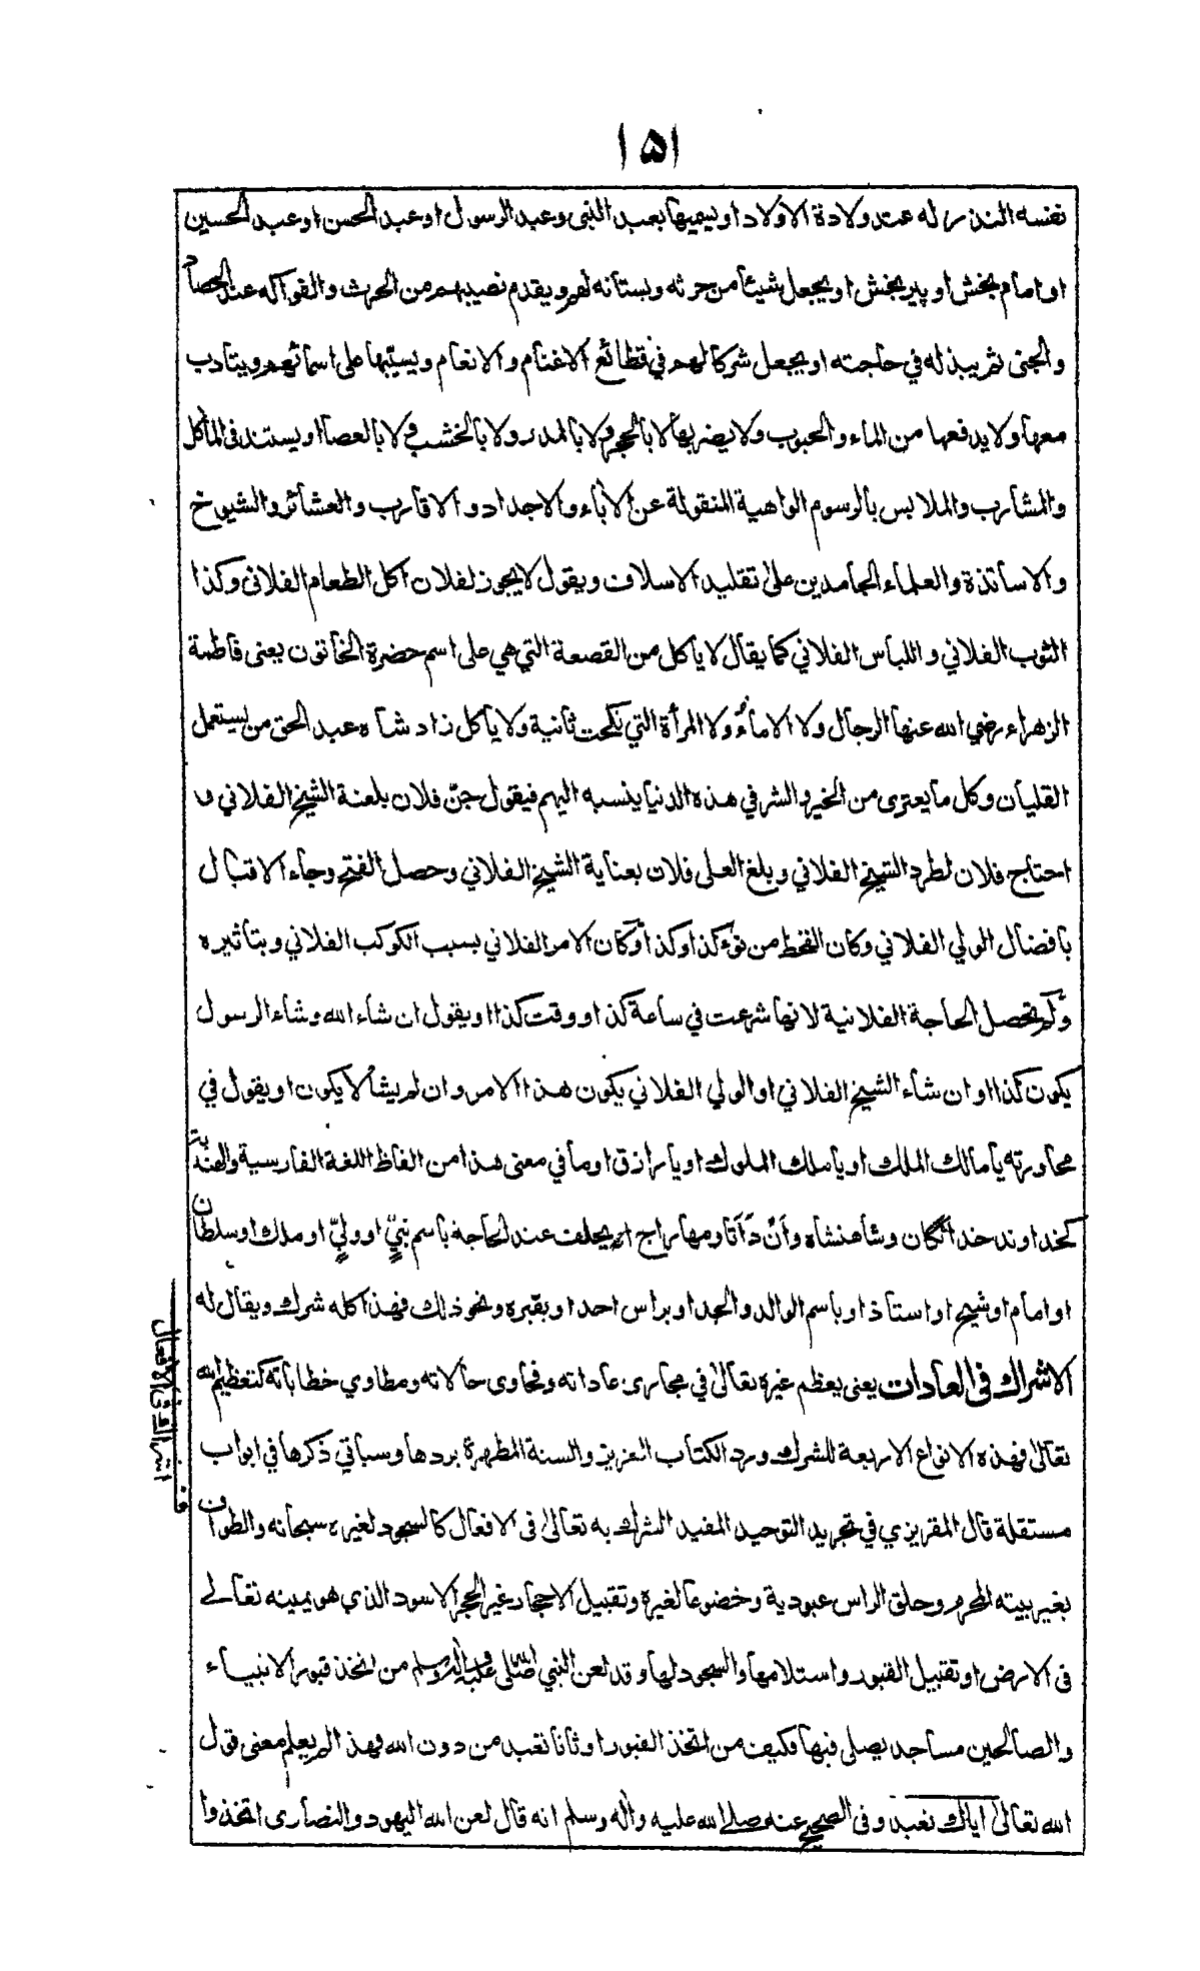 ١٥١
نفسه النذر له عند ولادة الاولاد او يسميها بعبد النبى وعبد الرسول او عبد الحسن او عبد الحسين
او امام بخش او پير بخش او يجعل شيئا من حرثه وبستانه لهم ويقدم نصيبهم من الحرث والفواكه عند الحصاد
والجنى ثم يبذله في حاجته او يجعل شركا لهم في قطائع الاغنام والانعام ويسيّبها على اسمائهم ويتادب
معها ولا يدفعها من الماء والحبوب ولا يضربها لا بالحجر ولا بالمدر ولا بالخشب ولا بالعصا او يستند فى المأكل
والمشارب والملابس بالرسوم الواهية المنقولة عن الأباء والاجداد والاقارب والعشائر والشيوخ
والاساتذة والعلماء الجامدين على تقليد الاسلاف ويقول لا يجوز لفلان اكل الطعام الفلانى وكذا
الثوب الفلاني واللباس الفلاني كما يقال لا ياكل من القصعة التي هي على اسم حضرة الخاتون يعنى فاطمة
الزهراء رضي الله عنها الرجال ولا الاماءُ ولا المرأة التي نكحت ثانية ولا ياكل زاد شاه عبد الحق من يستعمل
القليان وكل ما يعترى من الخير والشر في هذه الدنيا ينسبه اليهم فيقول جنّ فلان بلعنة الشيخ الفلاني و
احتاج فلان لطرد الشيخ الفلاني وبلغ العلى فلان بعناية الشيخ الفلاني وحصل الفتح وجاء الاقبال
بافضال الولي الفلاني وكان القحط من نوء كذا وكذا وكان الامر الفلاني بسبب الكوكب الفلاني وبتاثيره
ولم تحصل الحاجة الفلانية لانها شرعت في ساعة كذا او وقت كذا او يقول ان شاء الله وشاء الرسول
يكون كذا او ان شاء الشيخ الفلاني او الولي الفلاني يكون هذا الامر وان لم يشأ لا يكون او يقول في
محاورته يا مالك الملك او يا ملك الملوك او يا رازق او ما في معنى هذا من الفاظ اللغة الفارسية والهندية
كخداوند خدائگان وشاهنشاه وأن داتا ومهاراج او يحلف عند الحاجة باسم نبيّ او وليّ او ملك او سلطان
او امام او شيخ او استاذ او باسم الوالد والجد او براس احد او بقبره ونحو ذلك فهذا كله شرك ويقال له
الاشراك فى العادات يعنى يعظم غيره تعالى في مجارى عاداته وفحاوى حالاته ومطاوي خطاباته كتعظيم الله
تعالى فهذه الانواع الاربعة للشرك ورد الكتاب العزيز والسنة المطهرة بردها وسياتي ذكرها في ابواب
مستقلة قال المقريزي في تجريد التوحيد المفيد الشرك به تعالى فى الافعال كالسجود لغيره سبحانه والطواف
بغير بيته المحرم وحلق الراس عبودية وخضوعا لغيره وتقبيل الاحجار غير الحجر الاسود الذي هو يمينه تعالى
فى الارض او تقبيل القبور واستلامها والسجود لها وقد لعن النبي صلى الله عليه واله وسلم من اتخذ قبور الانبياء
والصالحين مساجد يصلى فيها فكيف من اتخذ القبور اوثانا تعبد من دون الله فهذا لم يعلم معنى قول
الله تعالى اياك نعبد وفى الصحيح عنه صلى الله عليه واله وسلم انه قال لعن الله اليهود والنصارى اتخذوا
الشرك فى الافعال